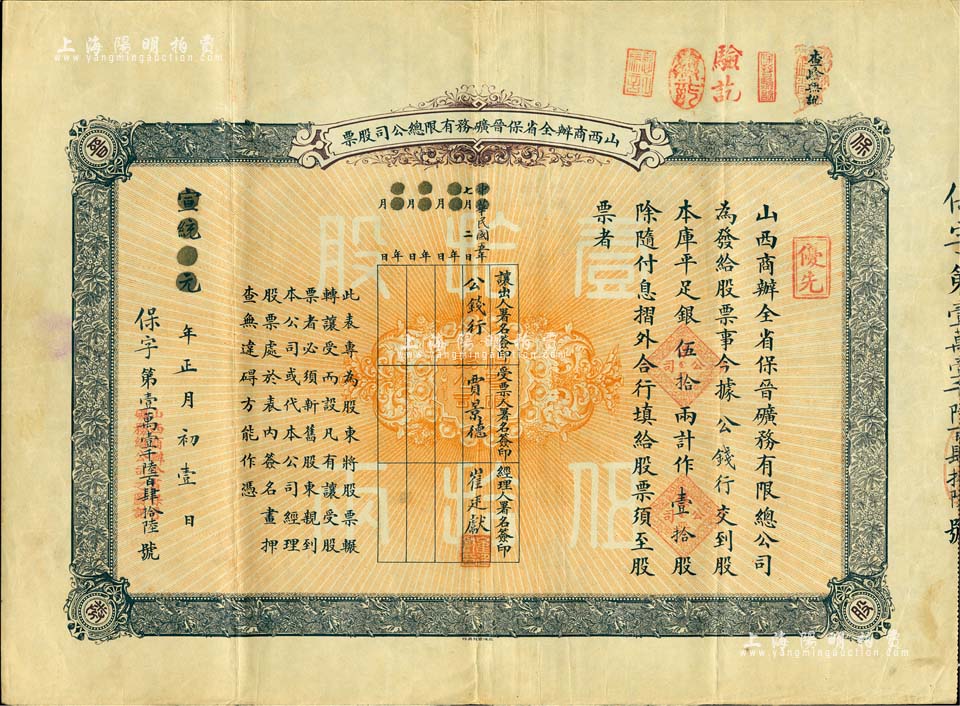 上海陽明拍賣
www.yangmingauction.com
驗訖
查驗無訛
山西商辦全省保晉礦務有限總公司股票
保
晉
股
優先
山西商辦全省保晉礦務有限總公司
為發給股票事今據 公錢行交到股
本庫平足銀伍拾兩計作壹拾股
除隨付息摺外合行填給股票須至股
票者
壹拾股
伍拾兩
讓出人署名簽印
受票人署名簽印
經理人署名簽印
中華民國五年七月二日
公錢行
賈景德
崔廷獻
年 月 日
年 月 日
年 月 日
此表專為股東將股票輾
轉讓受而設凡有讓受股
票者必須新舊股東親到
本公司或代本公司經理
股票處於表內簽名畫押
查無違碍方能作憑
宣統元年正月初壹日
保字第壹萬壹千陸百肆拾陸號
保字第壹萬壹千陸百肆拾陸號
上海陽明拍賣
www.yangmingauction.com
上海陽明拍賣
www.yangmingauction.com